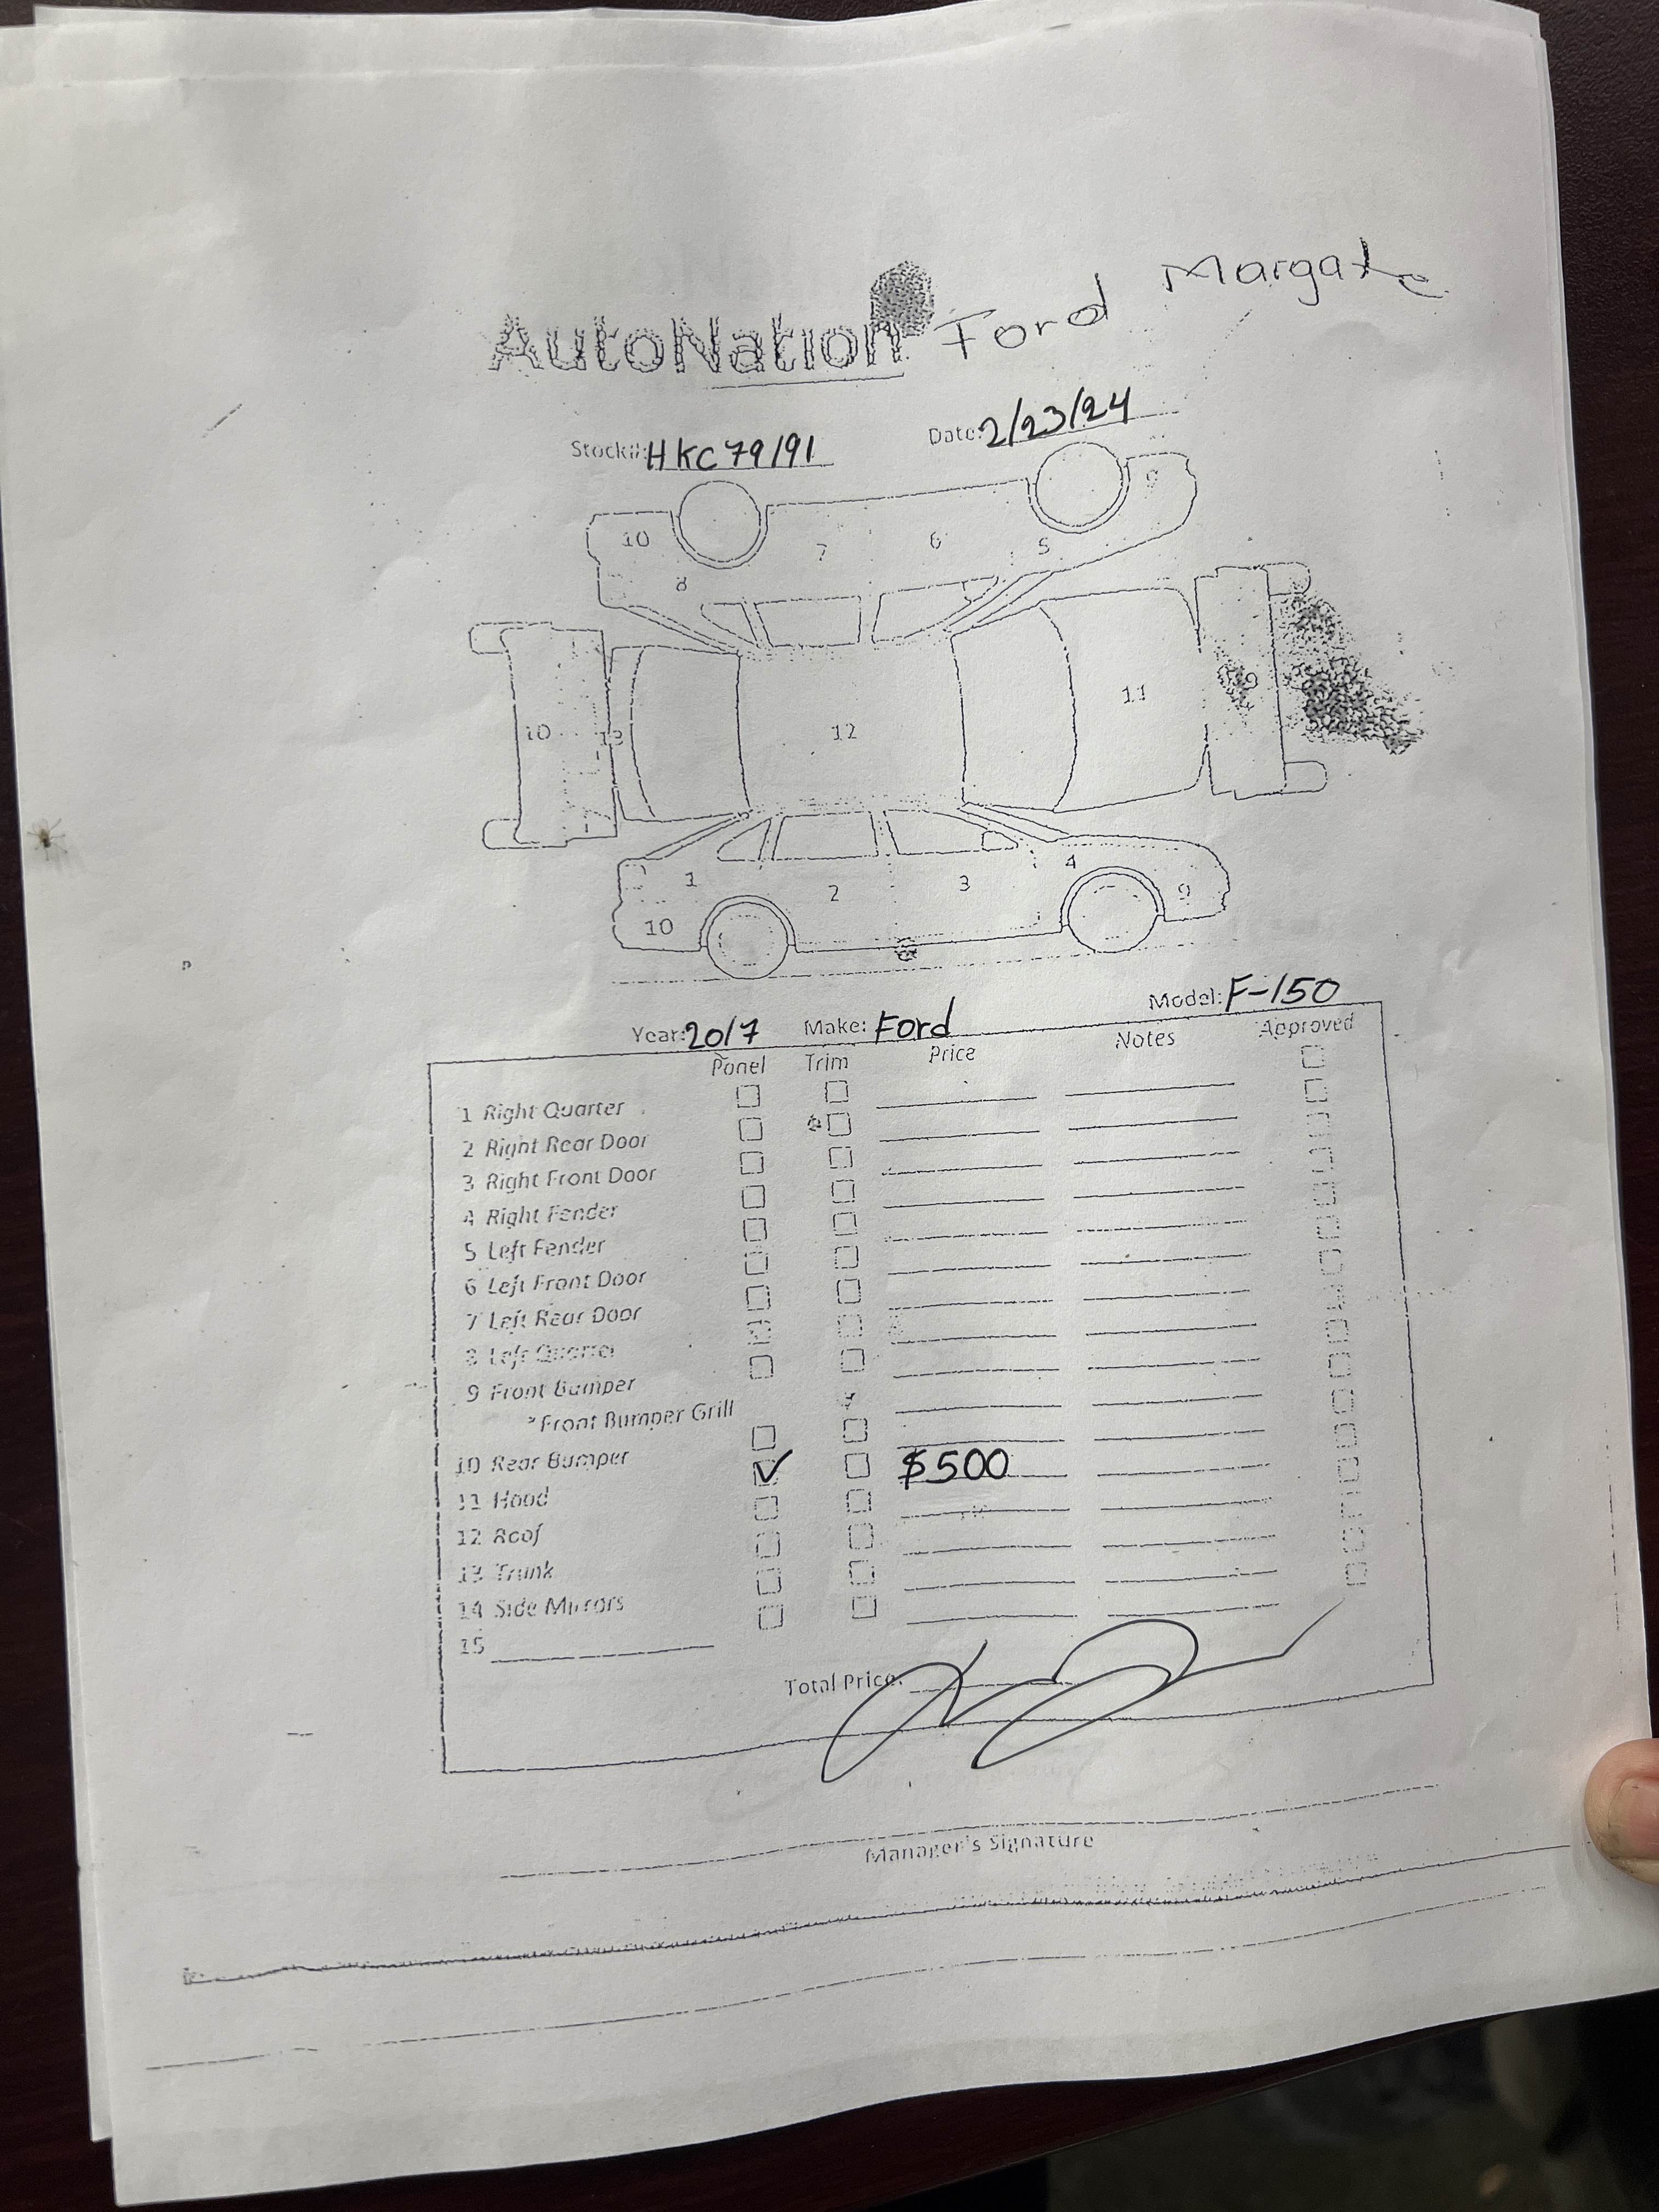 AutoNation Ford Margate
Stock#: HKC79191 Date: 2/23/24
10 7 6 5 9
8
10 13 12 11 9
1 2 3 4 9
10
Year: 2017 Make: Ford Model: F-150
Panel Trim Price Notes Approved
1 Right Quarter
2 Right Rear Door
3 Right Front Door
4 Right Fender
5 Left Fender
6 Left Front Door
7 Left Rear Door
8 Left Quarter
9 Front Bumper
*Front Bumper Grill
10 Rear Bumper ✓ $500
11 Hood
12 Roof
13 Trunk
14 Side Mirrors
15
Total Price:
Manager's Signature